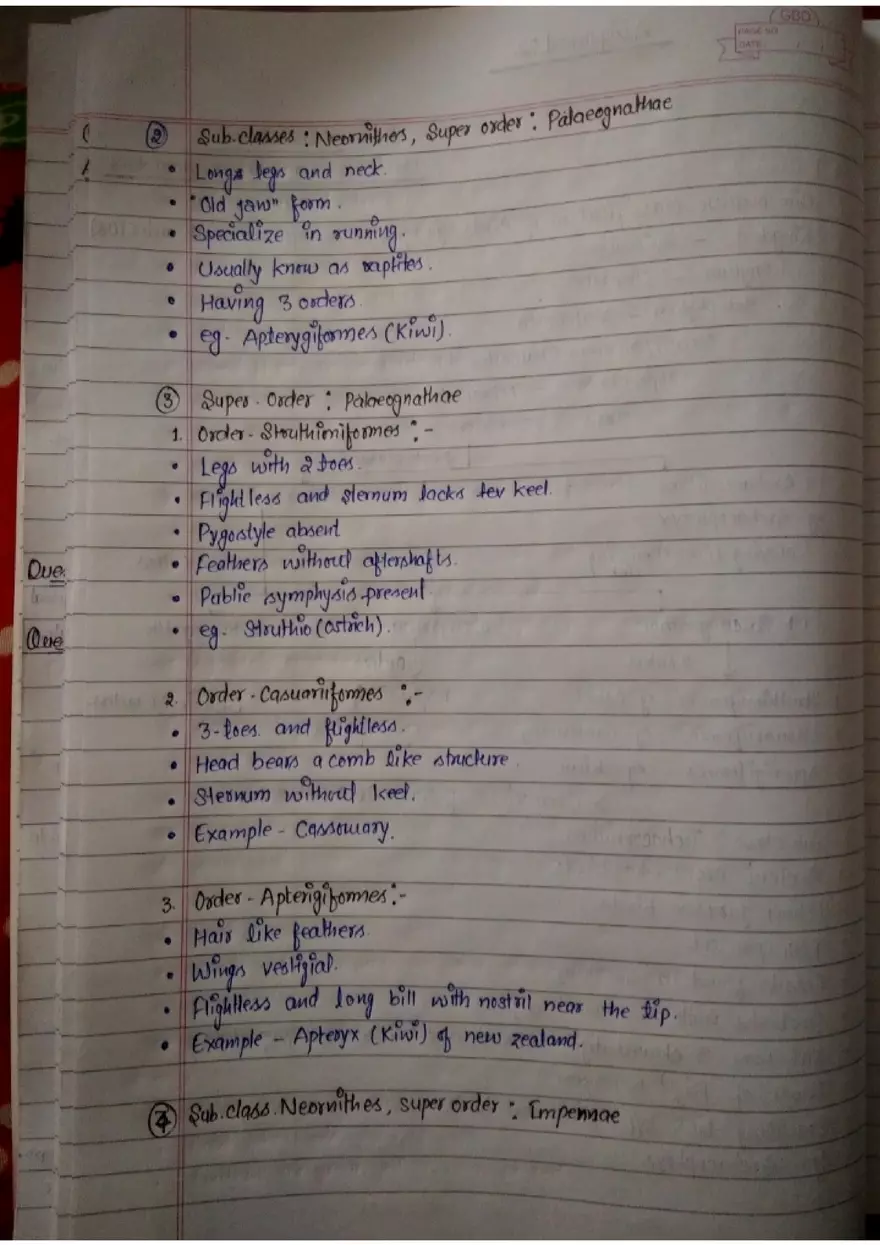 (GBD)
PAGE NO
DATE
② Sub.classes : Neornithes, Super order : Palaeognathae
• Long legs and neck.
• "Old jaw" form.
• Specialize in running.
• Usually know as raptites.
• Having 3 orders.
• eg. Apterygiformes (Kiwi).
③ Super.Order : Palaeognathae
1. Order - Struthimiformes :-
• Legs with 2 toes.
• Flightless and sternum lacks keel.
• Pygostyle absent
Que. • Feathers without aftershafts.
• Public symphysis present
Que • eg. Strouthio (Ostrich).
2. Order - Casuariiformes :-
• 3-toes and flightless.
• Head bears a comb like structure.
• Sternum without keel.
• Example - Cassowary.
3. Order - Apterigiformes :-
• Hair like feathers
• Wings vestigial.
• Flightless and long bill with nostril near the tip.
• Example - Apteryx (Kiwi) of new zealand.
④ Sub.class.Neornithes, super order : Impennae